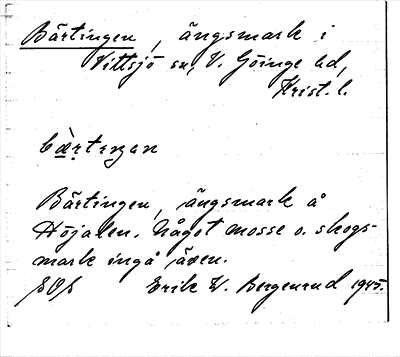 Bärtingen, ängsmark i
Vittsjö sn, V. Göinge hd,
Krist. l.
Bärtingen, ängsmark å
Höjalen. Något mosse o. skogs-
mark ingå även.
Erik W. Bergenrud 1945.